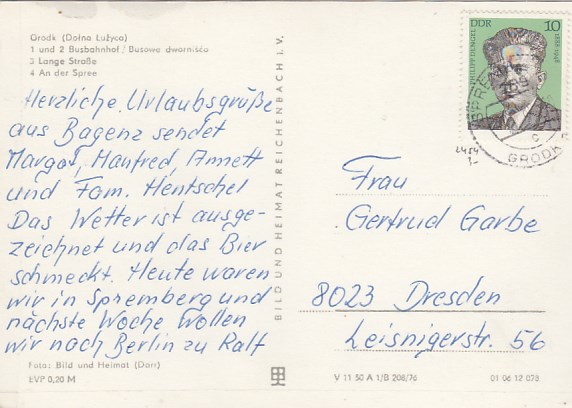 Grodk (Dolna Łužyca)
1 und 2 Busbahnhof / Busowe dwarnišćo
3 Lange Straße
4 An der Spree
Herzliche Urlaubsgrüße
aus Bagenz sendet
Margot, Manfred, Annett
und Fam. Hentschel
Das Wetter ist ausge-
zeichnet und das Bier
schmeckt. Heute waren
wir in Spremberg und
nächste Woche wollen
wir nach Berlin zu Ralf
Foto: Bild und Heimat (Darr)
EVP 0,20 M
BILD UND HEIMAT REICHENBACH I. V.
DDR 10
PHILIPP DENGEL
1888-1948
GRODK
Frau
Gertrud Garbe
8023 Dresden
Leisnigerstr. 56
V 11 50 A 1/B 208/76
01 06 12 078